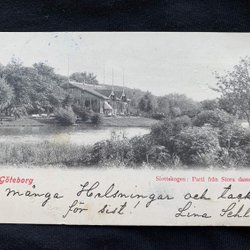 Göteborg
Slottskogen: Parti från Stora dammen
många Helsningar och tack
för sist. Lina